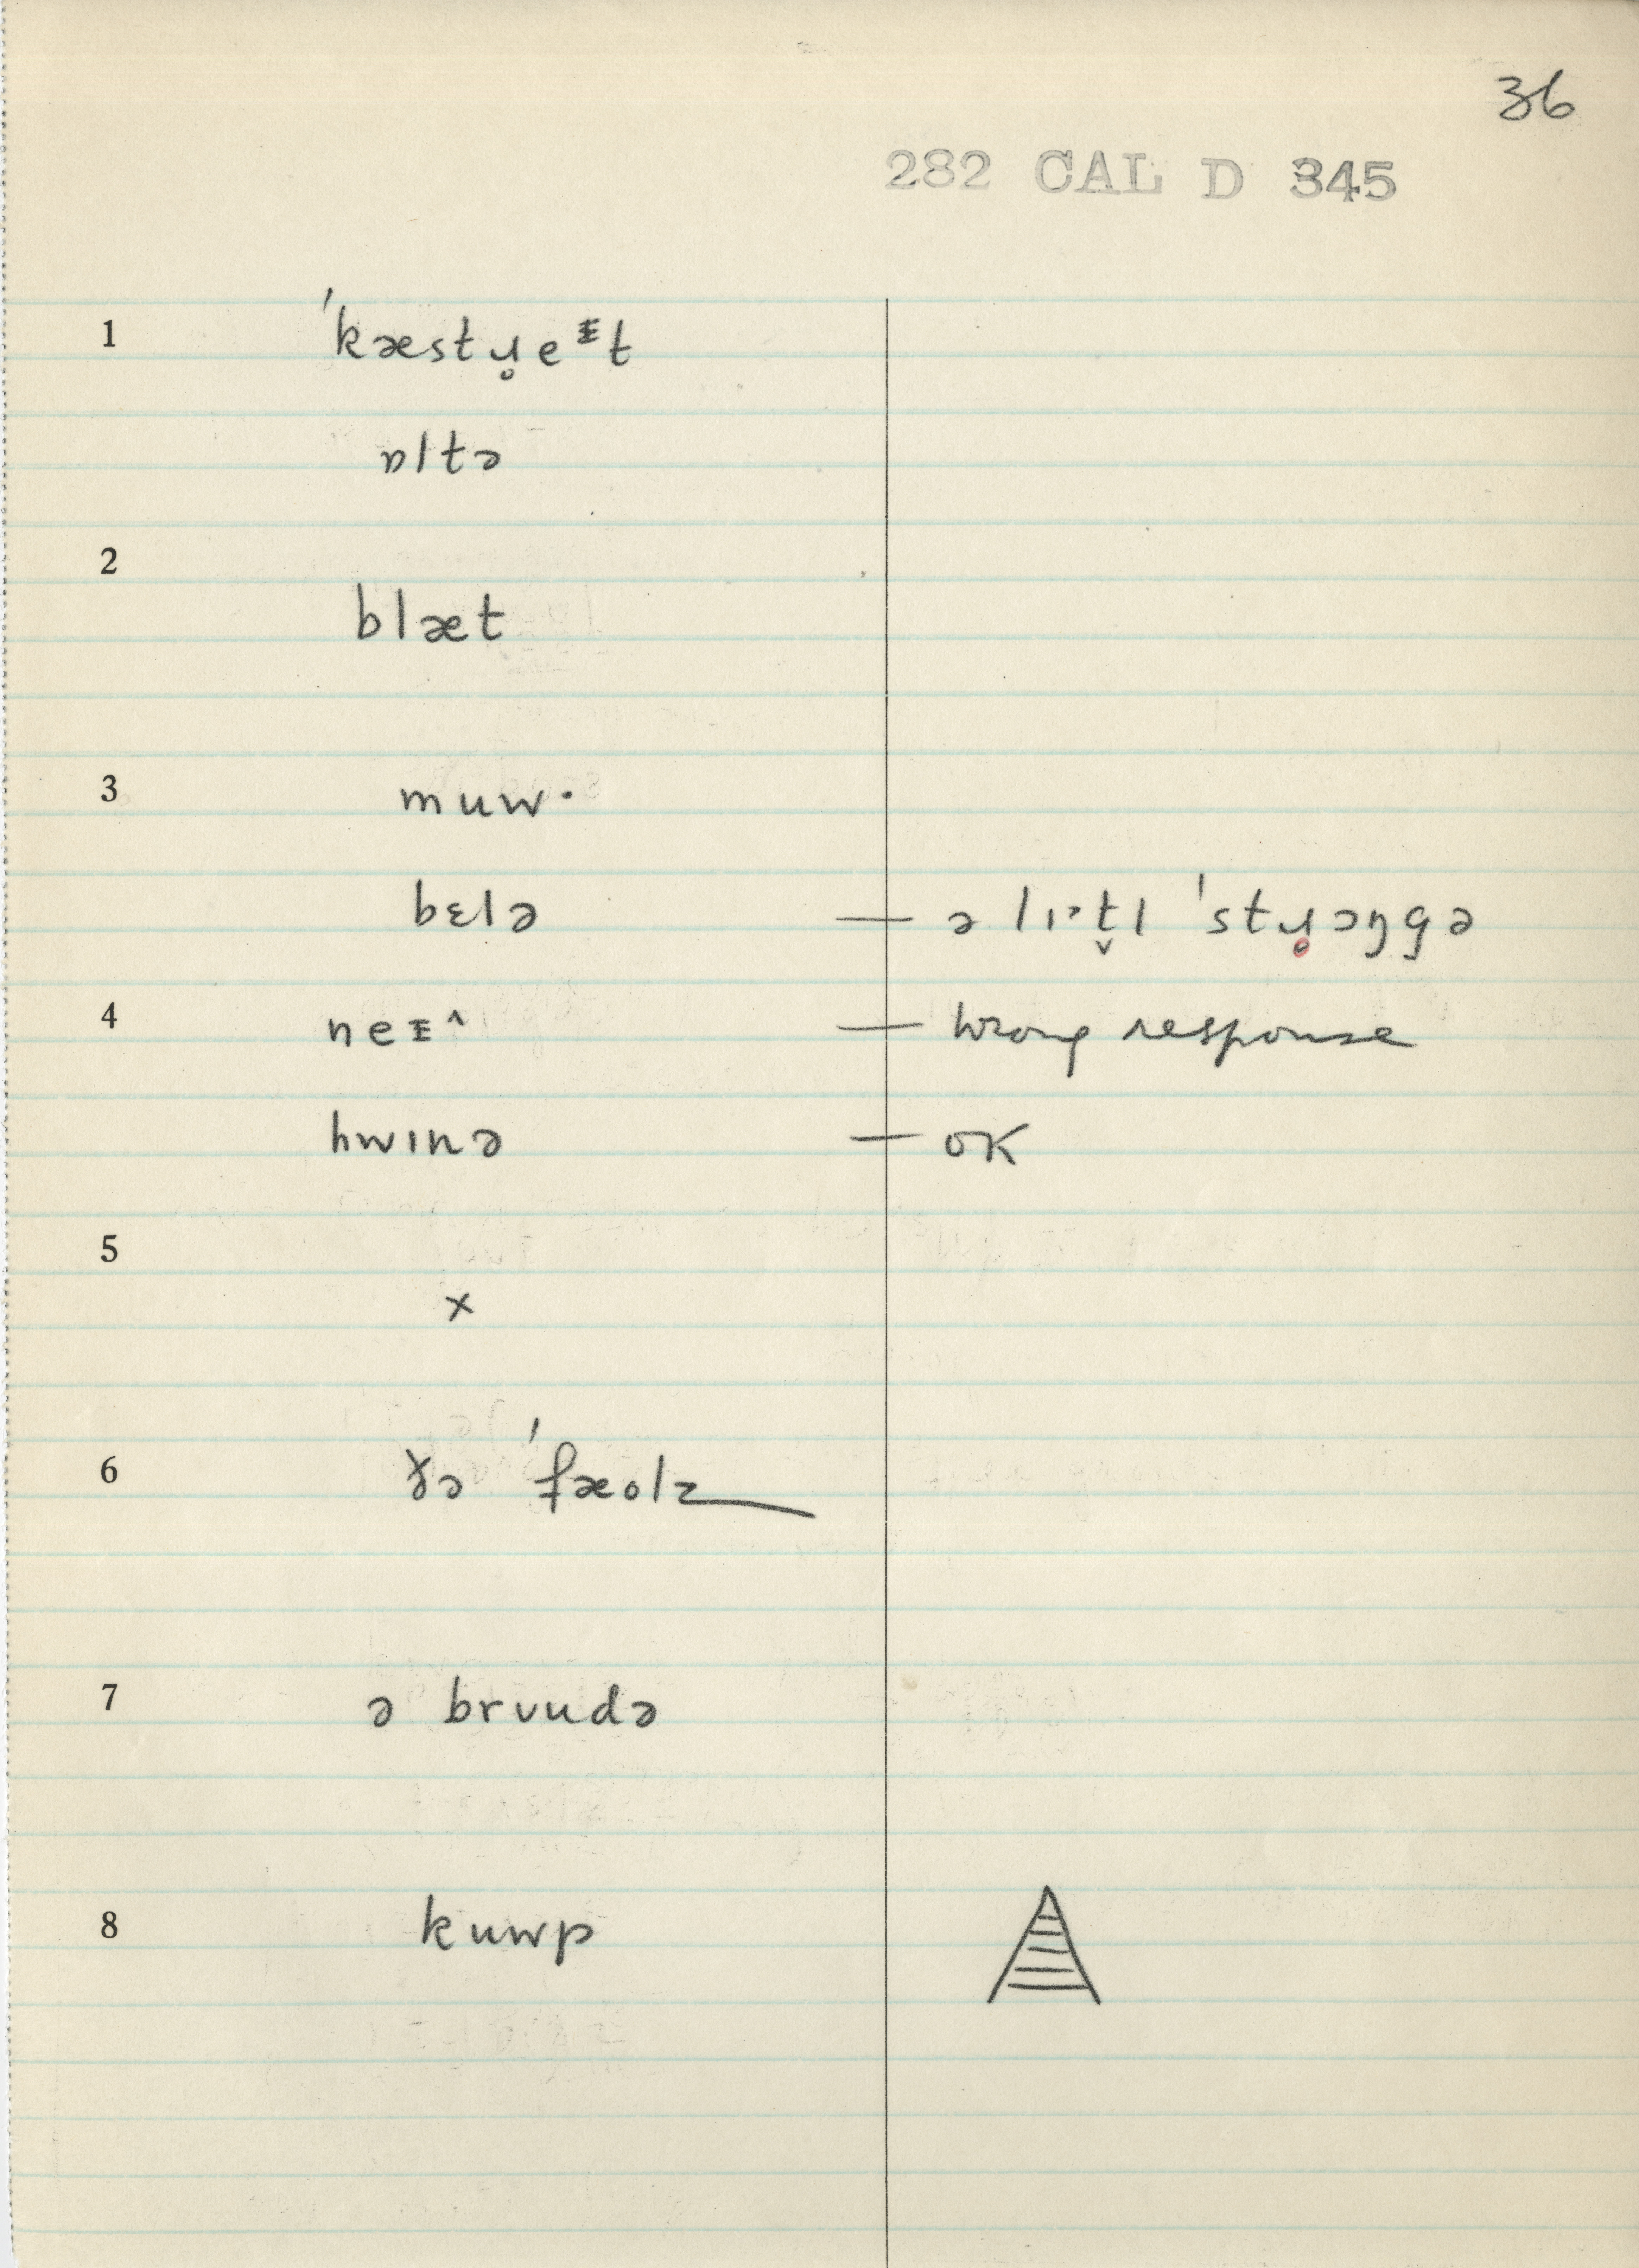 36
282 CAL D 345
1 ˈkæstɹ̥eᵻt
ɒltə
2
blæt
3 muw·
bɛlə — ə lɪˑᵊt̬l ˈstɹ̥ɔŋgə
4 neᵻ^ — wrong response
hwɪnə — OK
5
x
6 ɤə ˈfæolz
7 ə brʋudə
8 kuwp